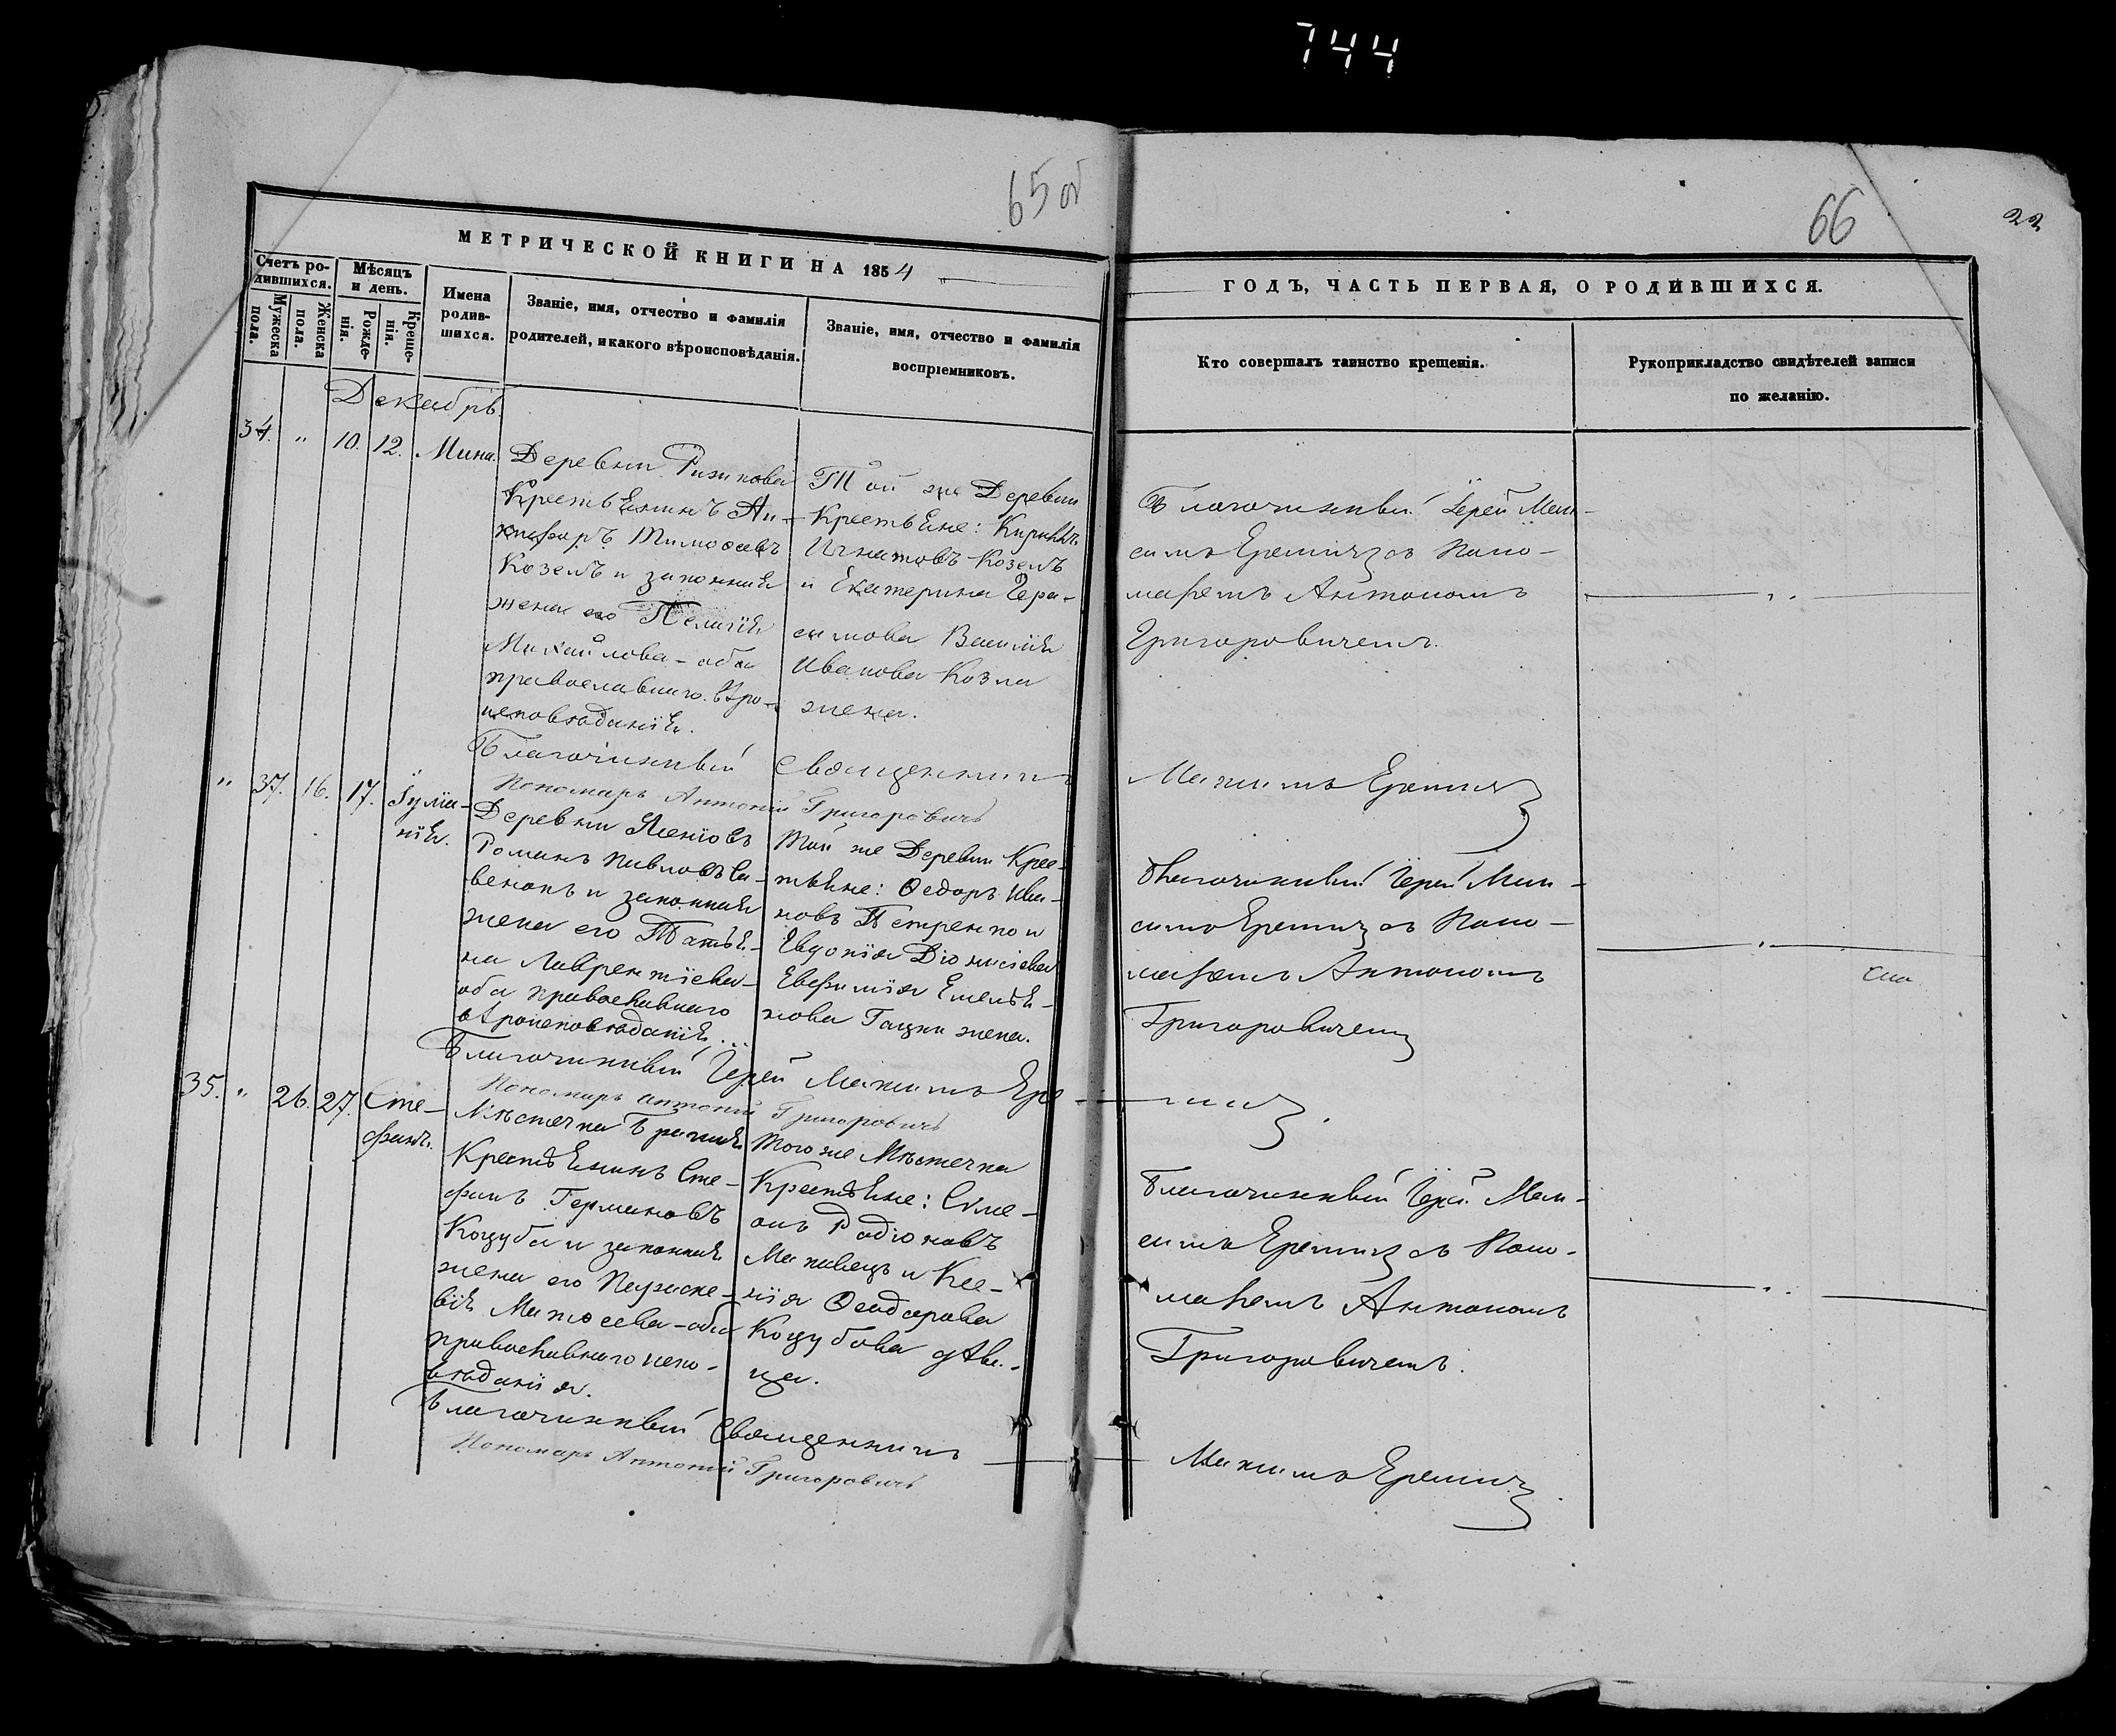 744
65 об
66
22
МЕТРИЧЕСКОЙ КНИГИ НА 1854
ГОДЪ, ЧАСТЬ ПЕРВАЯ, О РОДИВШИХСЯ.
Счетъ ро-
дившихся.
Мужеска
пола.
Женска
пола.
Мѣсяцъ
и день.
Рожде-
нія.
Креще-
нія.
Имена
родив-
шихся.
Званіе, имя, отчество и фамилія
родителей, и какого вѣроисповѣданія.
Званіе, имя, отчество и фамилія
воспріемниковъ.
Кто совершалъ таинство крещенія.
Рукоприкладство свидѣтелей записи
по желанію.
Декабрь.
34. " 10. 12. Мина.
Деревни
Крестьянинъ Ни-
кифоръ Тимофеевъ
Козелъ и законная
жена его Пелагія
Михайлова - оба
православнаго вѣро-
исповѣданія.
Той же Деревни
Крестьяне: Кириллъ
Игнатовъ Козелъ
и Екатерина Гера-
симова Василія
Иванова Козла
жена.
Благочинный Іерей Мак-
симъ Еремичъ съ Поно-
маремъ Антономъ
Григоровичемъ.
Благочинный Священникъ Максимъ Еремичъ
Пономарь Антоній Григоровичъ
" 37. 16. 17. Іулiа-
нія.
Деревни
Романъ Павловъ Са-
венокъ и законная
жена его Татья-
на Лаврентіева
оба православнаго
вѣроисповѣданія...
Той же Деревни Крес-
тьяне: Ѳедоръ Ива-
новъ Петренко и
Евдокія Діонисіева
Евфимія Емелья-
нова Гацки жена.
Благочинный Іерей Мак-
симъ Еремичъ съ Поно-
маремъ Антономъ
Григоровичемъ
Благочинный Іерей Максимъ Ере-мичъ.
Пономарь Антоній Григоровичъ
35. " 26. 27. Сте-
фанъ.
Мѣстечка Брагина
Крестьянинъ Сте-
фанъ Германовъ
Коцуба и законная
жена его Параске-
вія Матѳеева - оба
православнаго испо-
вѣданія.
Того же Мѣстечка
Крестьяне: Симе-
онъ Родіоновъ
Маковецъ и Ксе-
нія Ѳеодорова
Коцубова дѣви-
ца.
Благочинный Іерей Мак-
симъ Еремичъ съ Поно-
маремъ Антономъ
Григоровичемъ.
Благочинный Священникъ Максимъ Еремичъ
Пономарь Антоній Григоровичъ